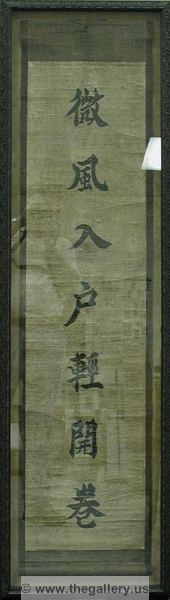 微風入户輕開卷
© www.thegallery.us